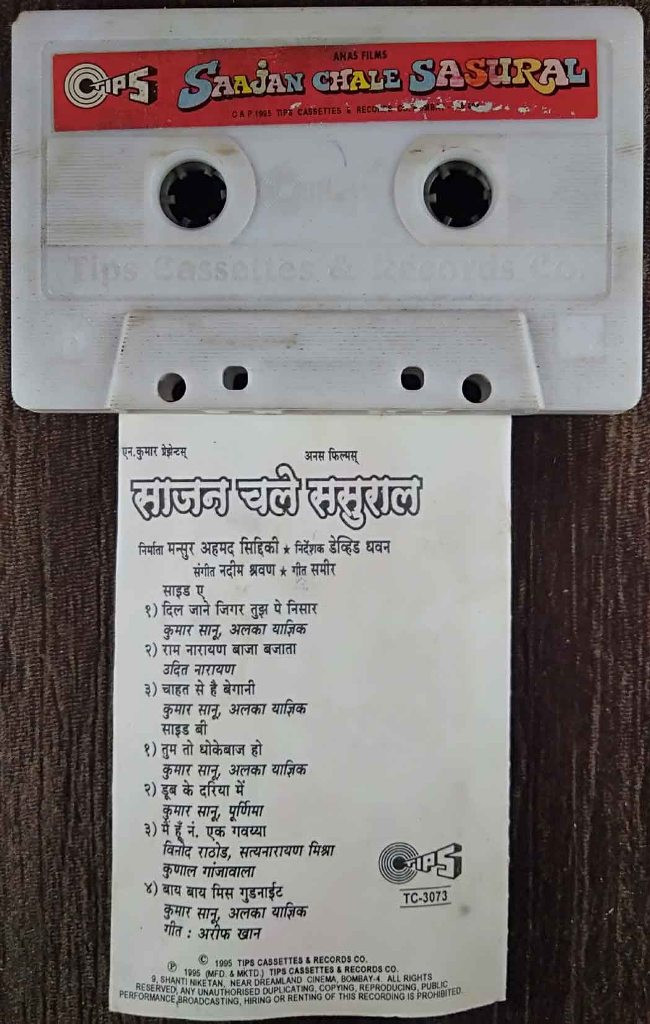 ANAS FILMS
TIPS SAAJAN CHALE SASURAL
© & P 1995 TIPS CASSETTES & RECORDS CO.
Tips Cassettes & Records Co.
एन.कुमार प्रेझेन्टस् अनस फिल्मस्
साजन चले ससुराल
निर्माता मन्सुर अहमद सिद्दिकी ★ निर्देशक डेव्हिड धवन
संगीत नदीम श्रवण ★ गीत समीर
साइड ए
१) दिल जाने जिगर तुझ पे निसार
कुमार सानू, अलका याज्ञिक
२) राम नारायण बाजा बजाता
उदित नारायण
३) चाहत से है बेगानी
कुमार सानू, अलका याज्ञिक
साइड बी
१) तुम तो धोकेबाज हो
कुमार सानू, अलका याज्ञिक
२) डूब के दरिया में
कुमार सानू, पूर्णिमा
३) मैं हूँ नं. एक गवय्या
विनोद राठोड, सत्यनारायण मिश्रा
कुणाल गांजावाला
४) बाय बाय मिस गुडनाईट
कुमार सानू, अलका याज्ञिक
गीत : अरीफ खान
TIPS
TC-3073
© 1995 TIPS CASSETTES & RECORDS CO.
℗ 1995 (MFD. & MKTD.) TIPS CASSETTES & RECORDS CO.
9, SHANTI NIKETAN, NEAR DREAMLAND CINEMA, BOMBAY-4. ALL RIGHTS
RESERVED, ANY UNAUTHORISED DUPLICATING, COPYING, REPRODUCING, PUBLIC
PERFORMANCE,BROADCASTING, HIRING OR RENTING OF THIS RECORDING IS PROHIBITED.